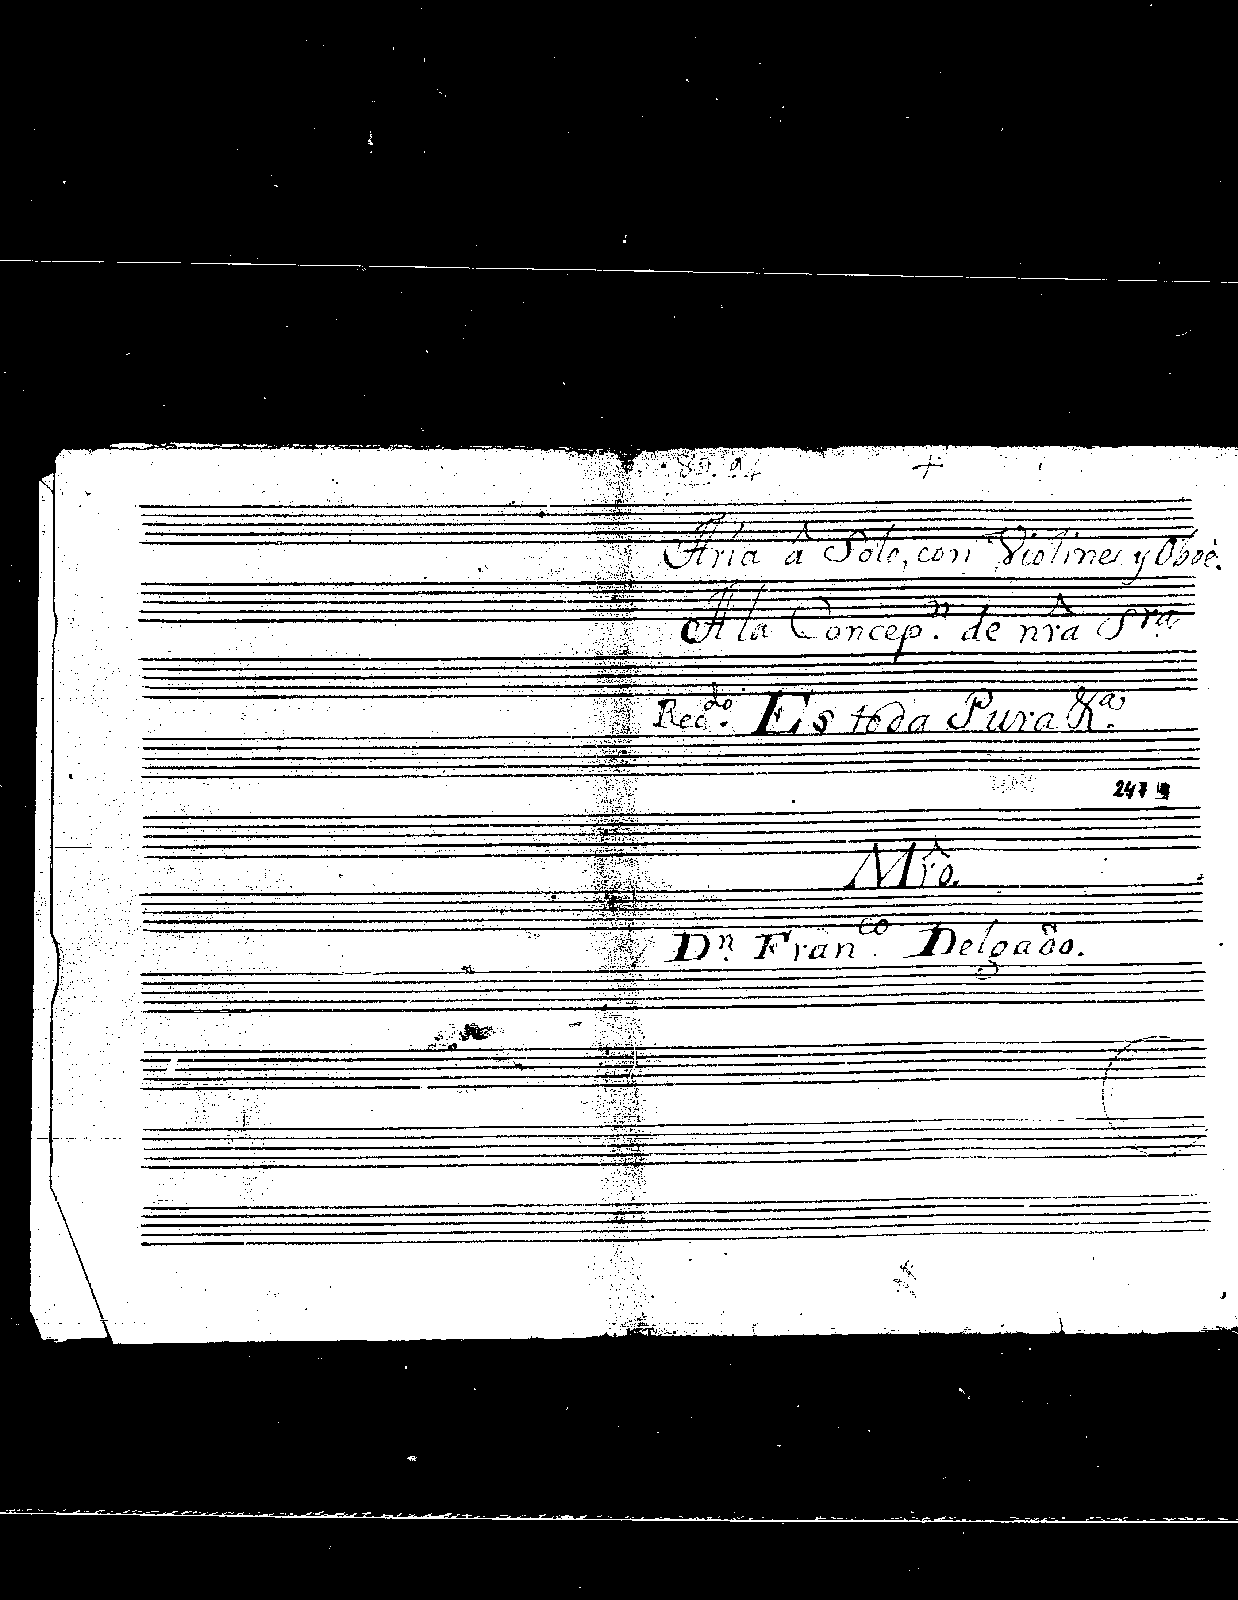 +
Aria â Solo, con Violines y Oboè.
A la Concep.ⁿ de nr̂a Sra
Rec.do Es toda Pura &.a
247
Mrô.
Dn. Fran.co Delgado.